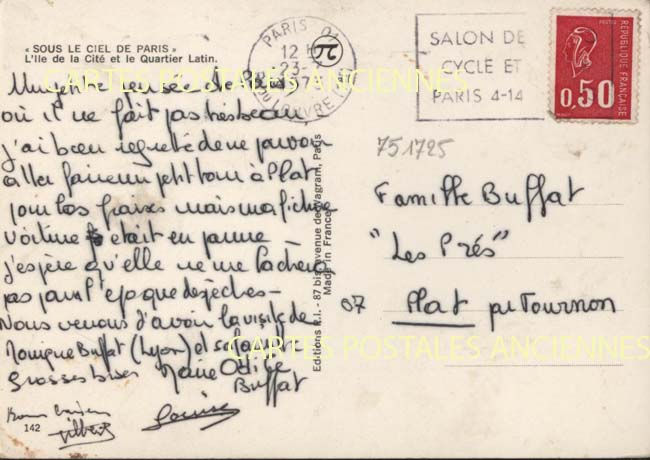 « SOUS LE CIEL DE PARIS »
L'Ile de la Cité et le Quartier Latin.
PARIS
12 H
23-
LOUVRE
SALON DE
CYCLE ET
PARIS 4-14
RÉPUBLIQUE FRANÇAISE
0,50
CARTES POSTALES ANCIENNES
pensée de Paris
où il ne fait pas très beau,
j'ai bien regretté de ne pouvoir
aller faire un petit tour à Plat
pour les fraises mais ma fichue
voiture était en panne -
j'espère qu'elle ne me lâchera
pas pour l'époque des pêches -
Nous venons d'avoir la visite de
Monique Buffat (Lyon) et sa famille
Grosses bises Marie Odile
Buffat
Bons baisers
Gilbert
Louise
142
Editions R.I. - 87 bis, avenue de Wagram, Paris
Made in France
751725
Famille Buffat
"Les Prés"
07 Plat par Tournon
CARTES POSTALES ANCIENNES